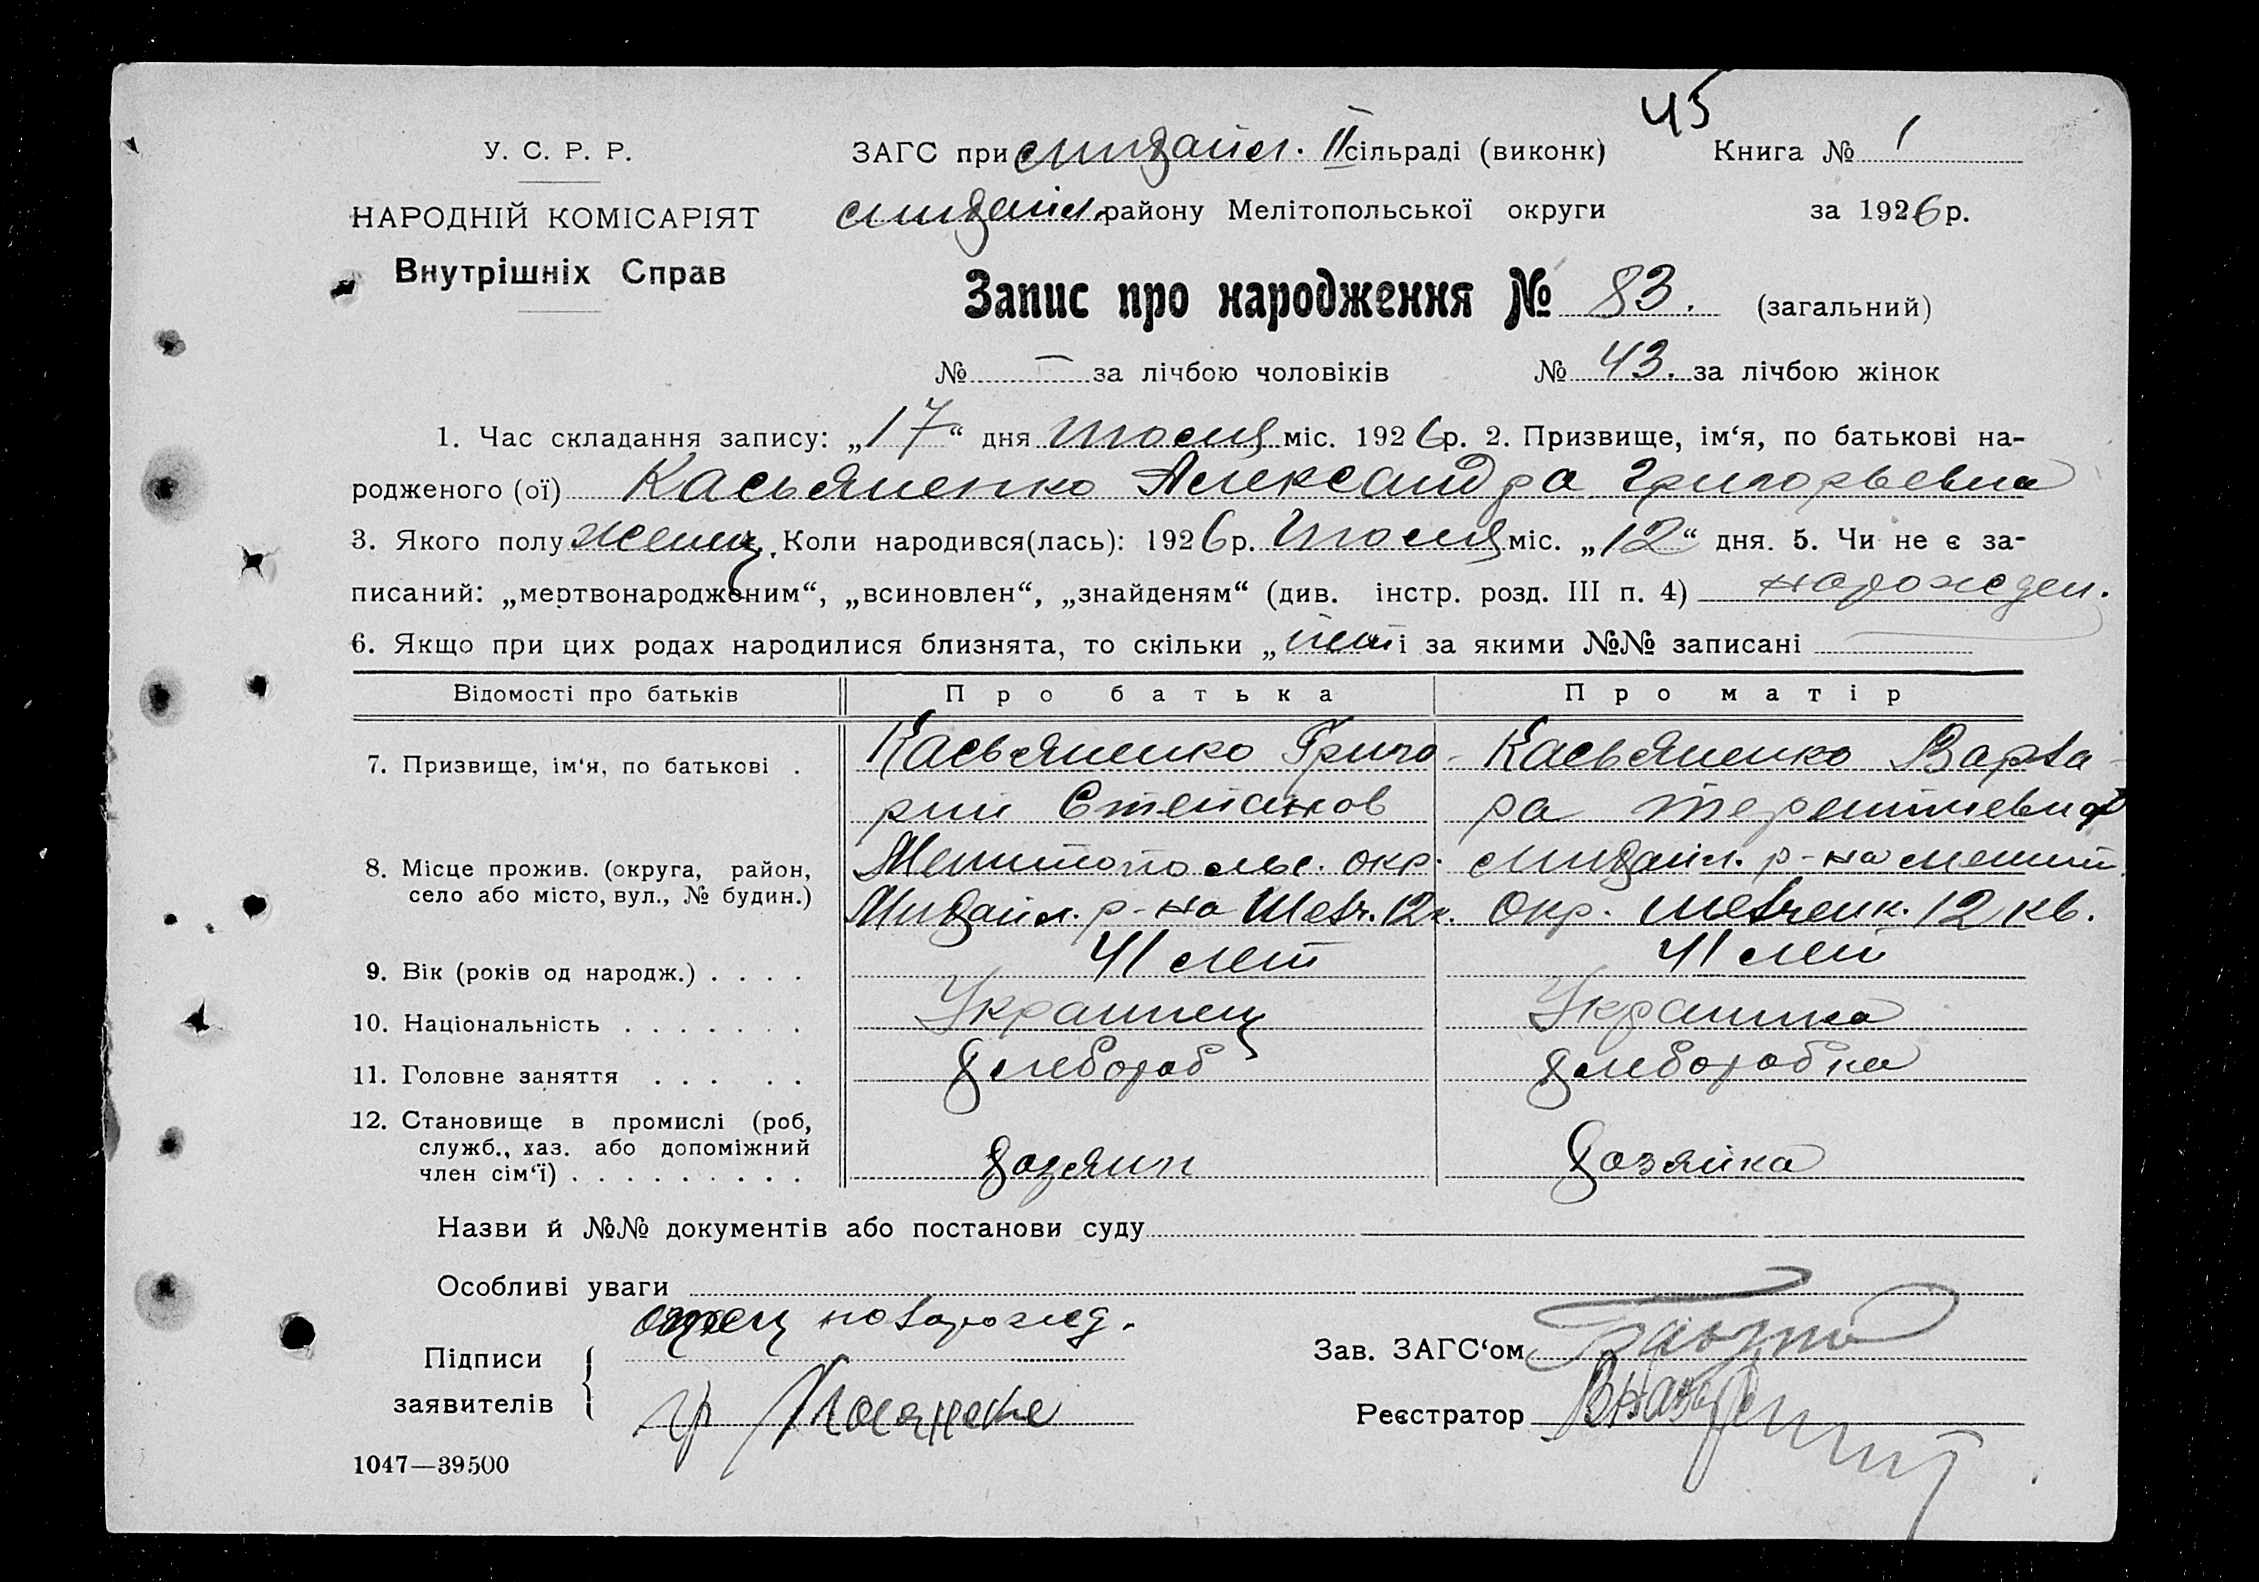 45
У. С. Р. Р.
НАРОДНІЙ КОМІСАРІЯТ
Внутрішніх Справ
ЗАГС при Михайл. II сільраді (виконк) Книга № 1
Михайл. району Мелітопольської округи за 1926 р.
Запис про народження № 83. (загальний)
№ — за лічбою чоловіків № 43. за лічбою жінок
1. Час складання запису: „17“ дня Июля міс. 1926 р. 2. Призвище, ім‘я, по батькові на-
родженого (ої) Касьяненко Александра Григорьевна
3. Якого полу женщ. Коли народився(лась): 1926 р. Июля міс. „12“ дня. 5. Чи не є за-
писаний: „мертвонародженим“, „всиновлен“, „знайденям“ (див. інстр. розд. III п. 4) нарожден.
6. Якщо при цих родах народилися близнята, то скільки „ нет і за якими №№ записані
Відомості про батьків Про батька Про матір
7. Призвище, ім‘я, по батькові . Касьяненко Григо- Касьяненко Варва-
рий Степанов ра Терентиевна
8. Місце прожив. (округа, район, Мелитопольс. окр. Михайл. р-на Мелит.
село або місто, вул., № будин.) Михайл. р-на Шевч. 12 к. окр. Шевченк. 12 кв.
9. Вік (років од народж.) . . . . 41 лет 41 лет
10. Національність . . . . . . . Украинец Украинка
11. Головне заняття . . . . . Хлебороб Хлеборобка
12. Становище в промислі (роб,
служб., хаз. або допоміжний
член сім‘ї) . . . . . . . . . Хозяин Хозяйка
Назви й №№ документів або постанови суду
Особливі уваги
отец новорожд.
Підписи
заявителів
гр
Зав. ЗАГС‘ом
Реєстратор
1047—39500